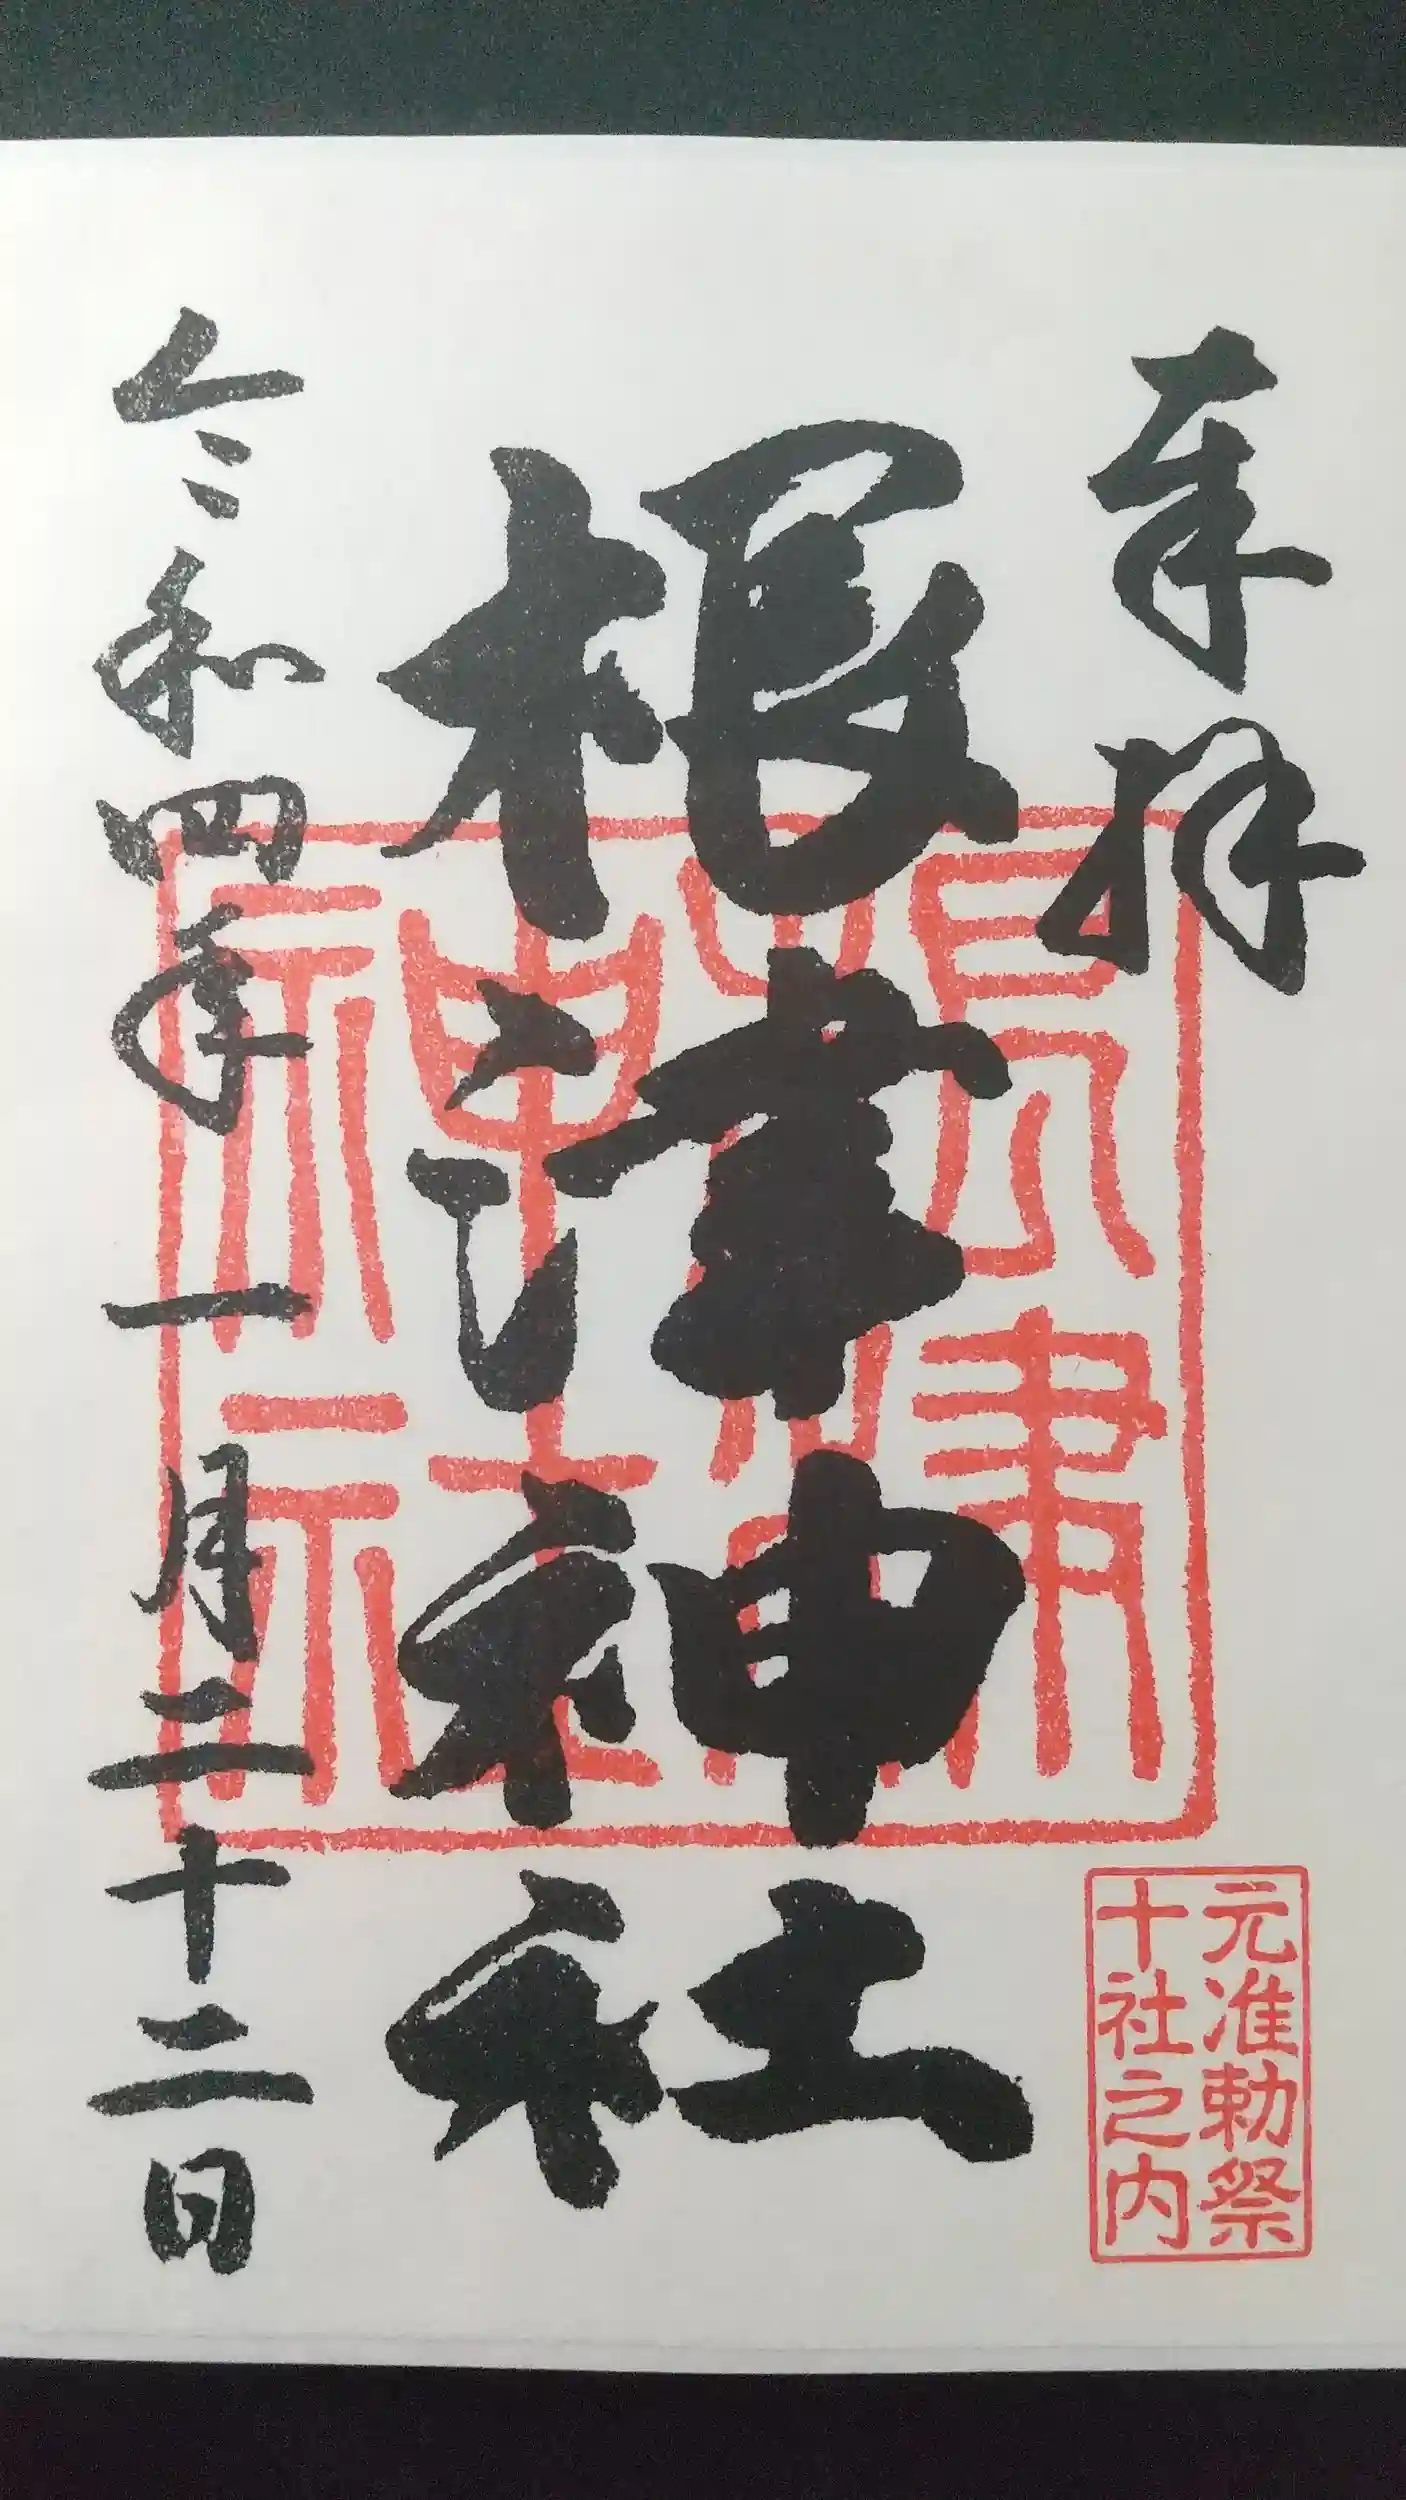 奉拝
元准勅祭
十社之内
根津神社
令和四年一月二十二日